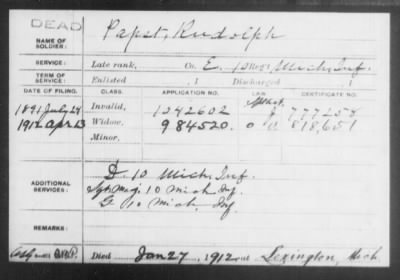 DEAD
NAME OF SOLDIER: Papst, Rudolph
SERVICE: Late rank, Co. E. 10 Reg't Mich. Inf.
TERM OF SERVICE: Enlisted , 1 Discharged , 1
DATE OF FILING. CLASS. APPLICATION NO. LAW. CERTIFICATE NO.
1891 July 27 Invalid, 1042602 777258
1912 Apr. 13 Widow, 984520. 818,651
Minor,
ADDITIONAL SERVICES:
D. 10 Mich. Inf.
Sgt Maj. 10 Mich Inf.
G 10 Mich. Inf.
REMARKS:
Died Jan 27, 1912 at Lexington, Mich.